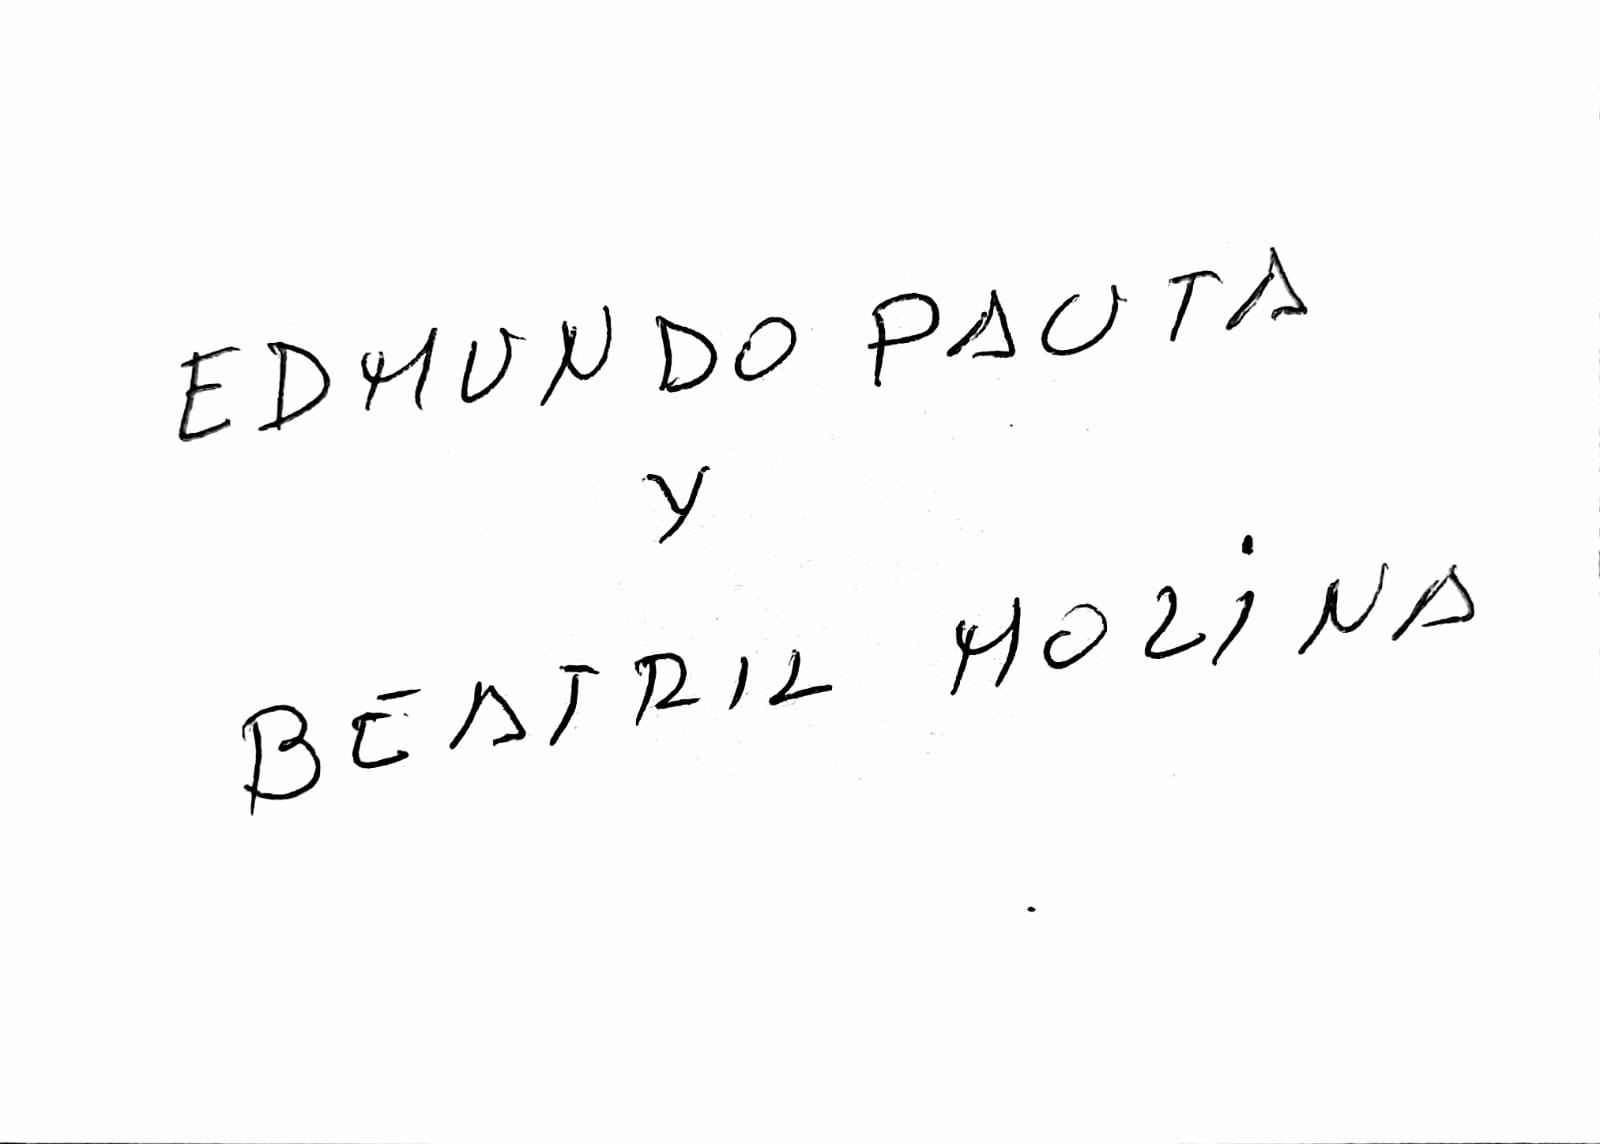 EDMUNDO PAUTA
Y
BEATRIZ MOLINA